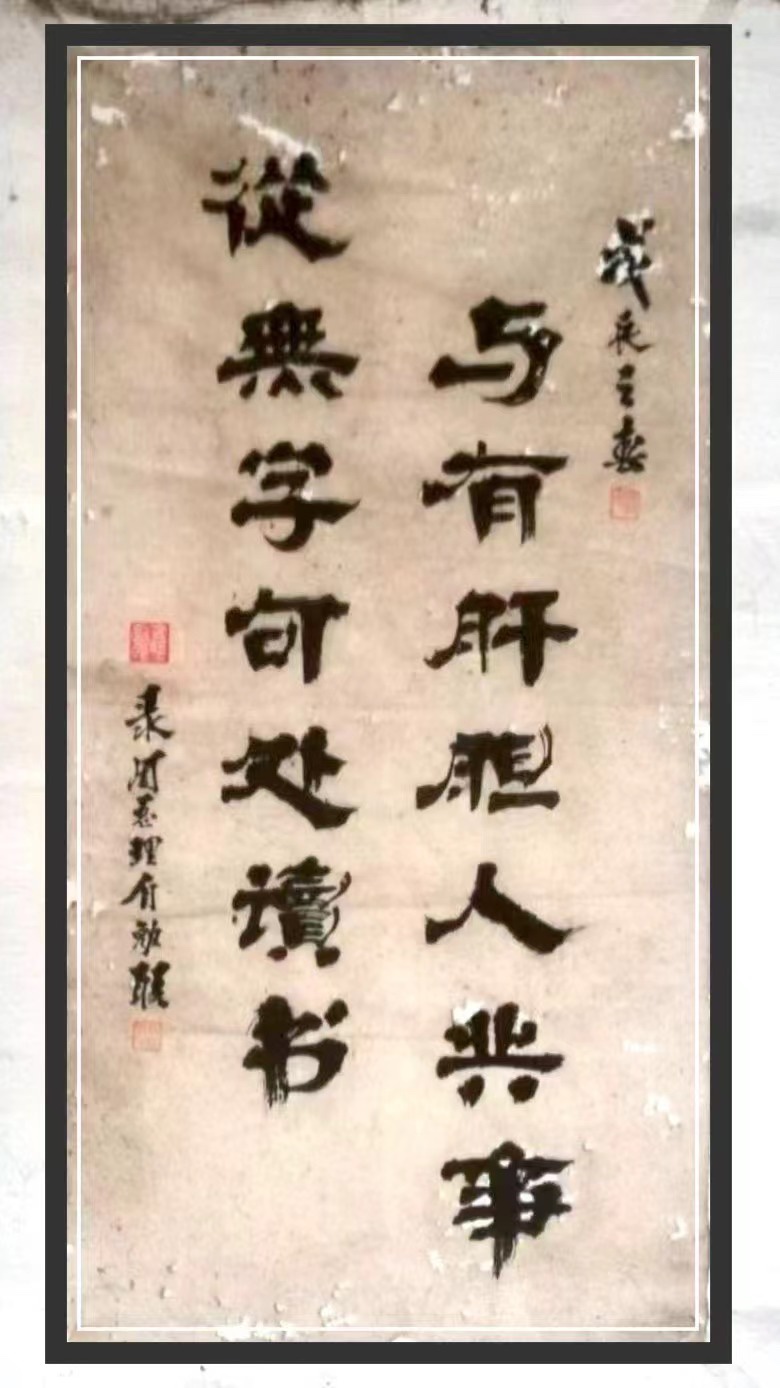 戊辰春
与有肝胆人共事
從無字句处讀书
录周总理
联